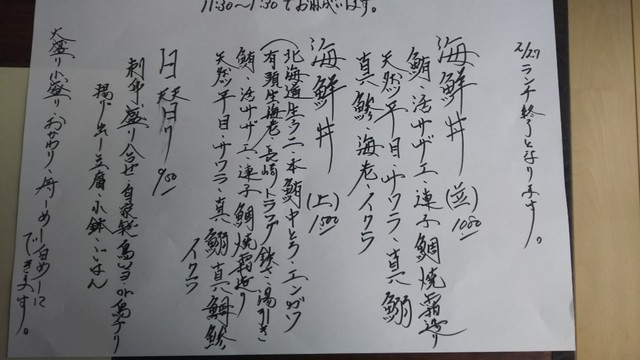 11:30〜1:30でお願いします。
2/27 ランチ終了となります。
海鮮丼(並)1080
鮪、活サザエ、連子鯛焼霜造り
天然平目、サワラ、真鰯
真鯵、海老、イクラ
海鮮丼(上)1500
(北海道生ウニ、本鮪中とろ、エンガワ
(有頭生海老、長崎トラフグ鉄さ、湯引き
鮪、活サザエ、連子鯛焼霜造り
天然平目、サワラ、真鰯、真鯵
イクラ
日替り 900
刺身盛り合せ、自家製
揚げ出し豆腐、小鉢、ごはん
大盛り、小盛り、おかわり、
できます。